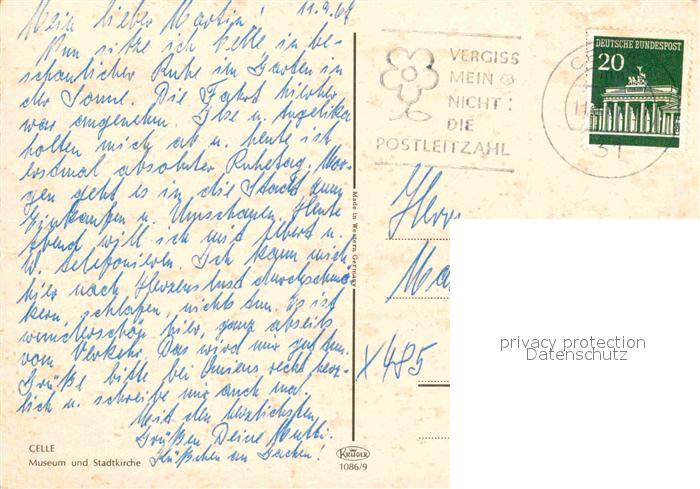 Mein lieber Martin! 11.9.68
Nun sitze ich Celle in be-
schaulicher Ruhe im Garten in
der Sonne. Die Fahrt hierher
war angenehm. Ilse u. Angelika
holten mich ab u. heute ist
erstmal absoluter Ruhetag. Mor-
gen geht es in die Stadt zum
Einkaufen u. Umschauen. Heute
abend will ich mit Albert u.
W. telefonieren. Ich kann mich
hier nach Herzenslust durchschmö-
kern, schlafen, nichts tun. Es ist
wunderschön hier, ganz abseits
vom Verkehr. Das wird mir gut tun.
Grüße bitte bei Ansens recht herz-
lich u. schreibe mir auch mal.
Mit den herzlichsten
Grüßen Deine Mutti.
Küßchen an
CELLE
Museum und Stadtkirche
KRÜGER
1086/9
Made in Western Germany
VERGISS
MEIN
NICHT:
DIE
POSTLEITZAHL
DEUTSCHE BUNDESPOST
20
31
Herrn
Ma
x485
privacy protection
Datenschutz